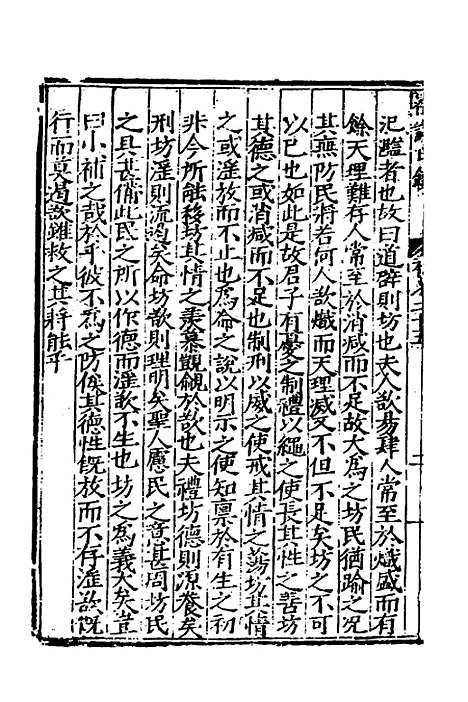 氾濫者也故曰道辟則坊也夫人欲易肆人常至於熾盛而有
餘天理難存人常至於消滅而不足故大為之坊民猶踰之况
其無防民將若何人欲熾而天理滅又不但不足矣坊之不可
以已也如此是故君子有憂之制禮以繩之使長其性之善坊
其德之或消滅而不足也制刑以威之使戒其情之蕩坊其情
之或淫放而不止也為命之說以明示之使知禀於有生之初
非今所能移坊其情之羡慕覬覦於欲也夫禮坊德則源養矣
刑坊淫則流遏矣命坊欲則理明矣聖人慮民之意甚周坊民
之具甚備此民之所以作德而淫欲不生也坊之為義大矣豈
曰小補之哉於乎彼不為之防俟其德性既放而不存淫欲既
行而莫遏欲雖救之其將能乎